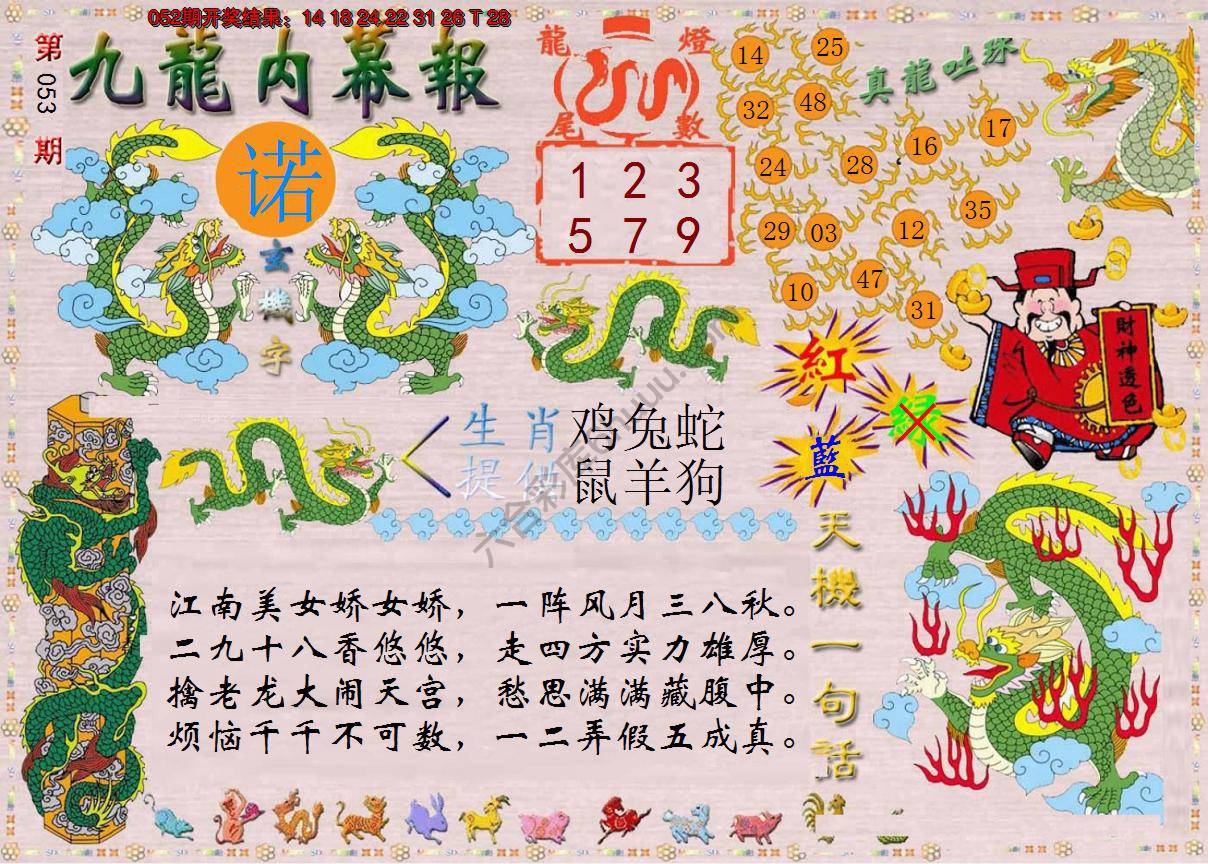 052期开奖结果：14 18 24 22 31 26 T 28
第053期
九龍内幕報
诺
玄機字
龍燈
尾數
1 2 3
5 7 9
真龍吐珠
14 25
32 48
24 28 16 17
29 03 12 35
10 47 31
財神透色
紅
绿
藍
生肖 鸡兔蛇
提供 鼠羊狗
天機一句話
江南美女娇女娇，一阵风月三八秋。
二九十八香悠悠，走四方实力雄厚。
擒老龙大闹天宫，愁思满满藏腹中。
烦恼千千不可数，一二弄假五成真。